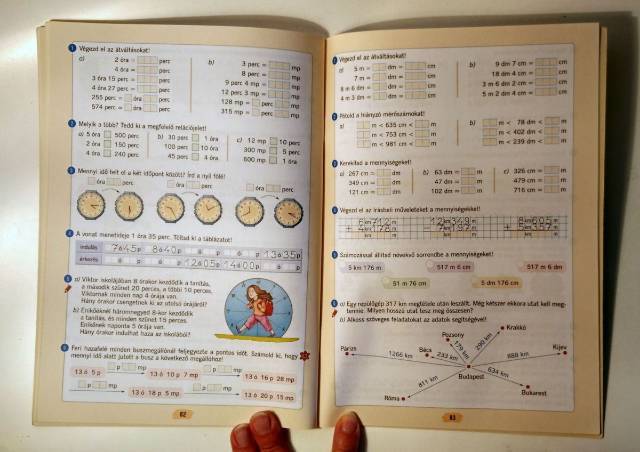 1 Végezd el az átváltásokat!
a) 2 óra = perc
4 óra = perc
3 óra 15 perc = perc
4 óra 27 perc = perc
255 perc = óra perc
574 perc = óra perc
b) 3 perc = mp
8 perc = mp
9 perc 4 mp = mp
12 perc 3 mp = mp
128 mp = perc mp
315 mp = perc mp
2 Melyik a több? Tedd ki a megfelelő relációjelet!
a) 5 óra 500 perc
2 óra 150 perc
4 óra 240 perc
b) 30 perc 1 óra
100 perc 10 óra
45 perc 4 óra
c) 12 mp 10 perc
300 mp 5 perc
600 mp 1 óra
3 Mennyi idő telt el a két időpont között? Írd a nyíl fölé!
óra perc
óra perc
óra perc
4 A vonat menetideje 1 óra 35 perc. Töltsd ki a táblázatot!
indulás 7ó45p 8ó40p ó p ó p 13ó35p
érkezés ó p ó p 12ó05p 14ó00p ó p
5 a) Viktor iskolájában 8 órakor kezdődik a tanítás,
a második szünet 20 perces, a többi 10 perces.
Viktornak minden nap 4 órája van.
Hány órakor csengetnek ki az utolsó órájáról?
b) Enikőéknek háromnegyed 8-kor kezdődik
a tanítás, és minden szünet 15 perces.
Enikőnek naponta 5 órája van.
Hány órakor indulhat haza az iskolából?
6 Feri hazafelé minden buszmegállónál feljegyezte a pontos időt. Számold ki, hogy
mennyi idő alatt jutott a busz a következő megállóhoz!
p mp
p mp
13 ó 5 p
13 ó 10 p 7 mp
13 ó 16 p 28 mp
p mp
p mp
13 ó 18 p 5 mp
13 ó 20 p 15 mp
82
1 Végezd el az átváltásokat!
a) 5 m = dm = cm
7 m = dm = cm
8 m 6 dm = dm = cm
4 m 3 dm = dm = cm
b) 9 dm 7 cm = cm
18 dm 4 cm = cm
3 m 6 dm 2 cm = cm
5 m 2 dm 4 cm = cm
2 Pótold a hiányzó mérőszámokat!
a) m < 635 cm < m
m < 753 cm < m
m < 981 cm < m
b) m < 78 dm < m
m < 402 dm < m
m < 239 dm < m
3 Kerekítsd a mennyiségeket!
a) 267 cm ≈ dm
349 cm ≈ dm
121 cm ≈ dm
b) 63 dm ≈ m
47 dm ≈ m
102 dm ≈ m
c) 326 cm ≈ m
479 cm ≈ m
716 cm ≈ m
4 Végezd el az írásbeli műveleteket a mennyiségekkel!
5 Számozással állítsd növekvő sorrendbe a mennyiségeket!
5 km 176 m
517 m 6 cm
517 m 6 dm
51 m 76 cm
5 dm 176 cm
6 a) Egy repülőgép 317 km megtétele után leszállt. Még kétszer ekkora utat kell meg-
tennie. Milyen hosszú utat tesz meg összesen?
b) Alkoss szöveges feladatokat az adatok segítségével!
Krakkó
Pozsony
Kijev
Párizs
Bécs
179 km
290 km
1266 km
233 km
888 km
Budapest
634 km
811 km
Bukarest
Róma
83